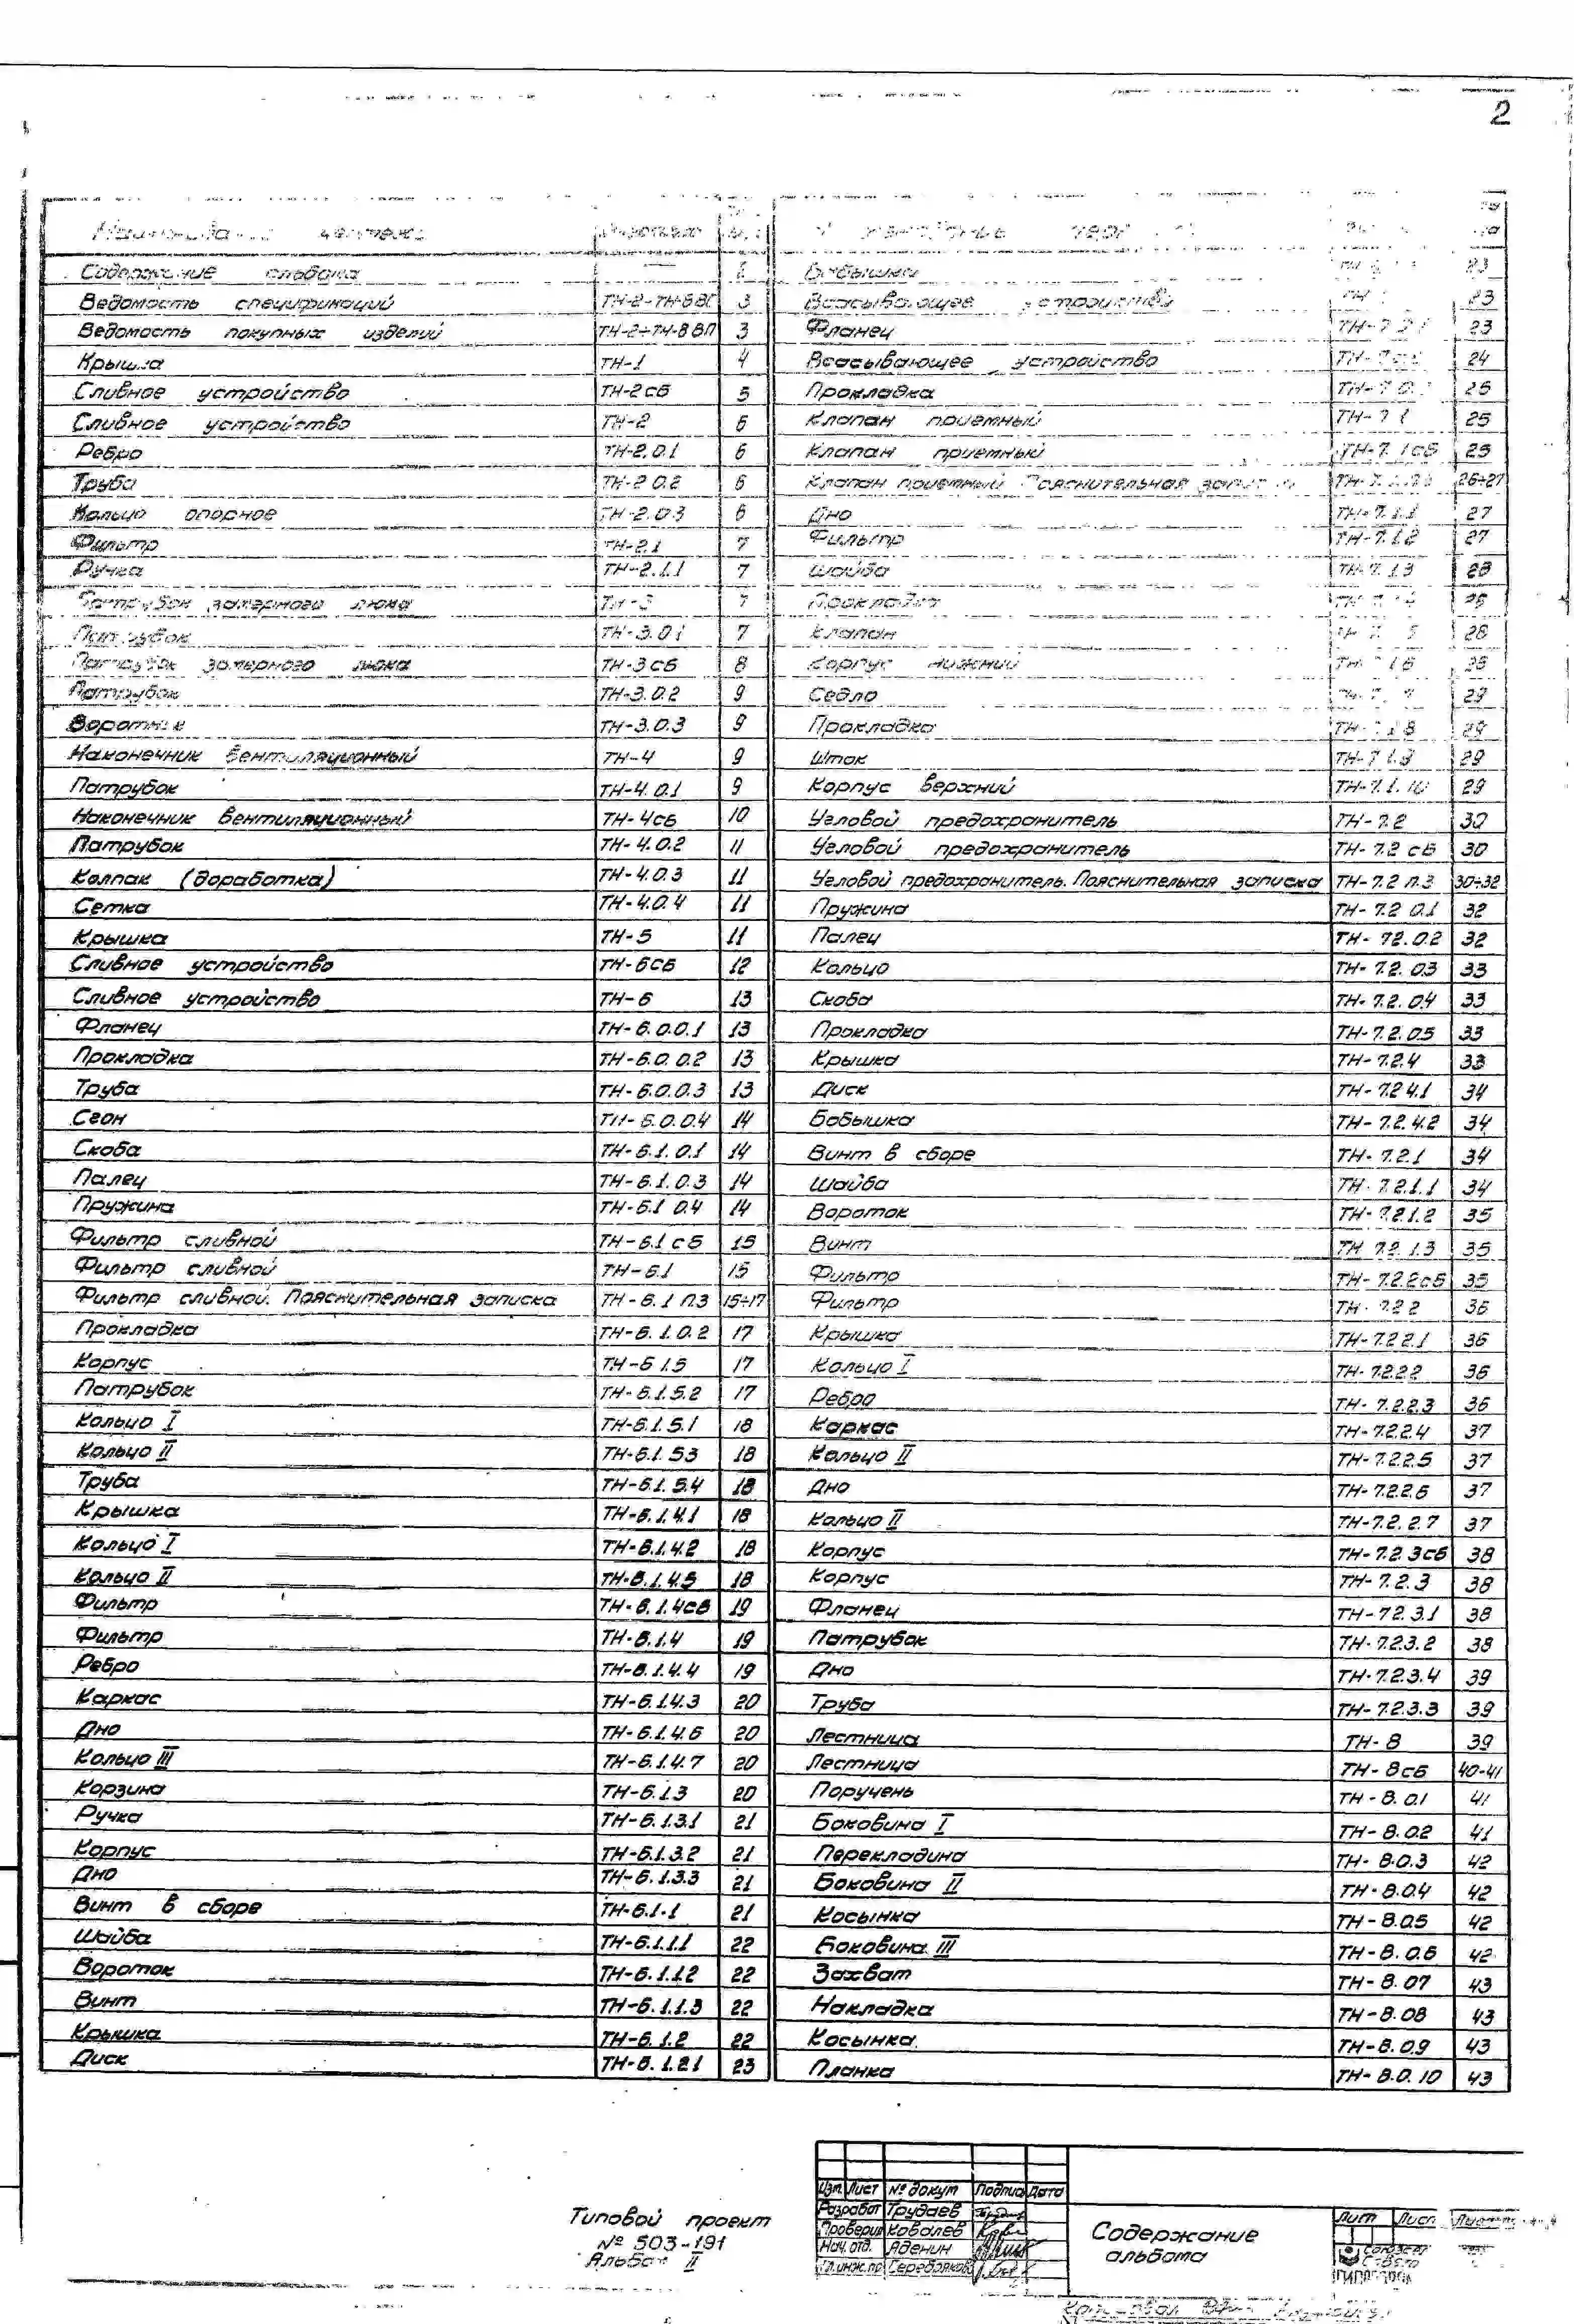 2
Наименование чертежа
Содержание альбома — 2
Ведомость спецификаций 3
Ведомость покупных изделий ТН-2÷ТН-8 ВП 3
Крышка ТН-1 4
Сливное устройство ТН-2сб 5
Сливное устройство ТН-2 6
Ребро ТН-2.0.1 6
Труба ТН-2 0.2 6
Кольцо опорное ТН-2.0.3 6
Фильтр ТН-2.1 7
Ручка ТН-2.1.1 7
Патрубок замерного люка ТН-3 7
Патрубок ТН-3.01 7
Патрубок замерного люка ТН-3сб 8
Патрубок ТН-3.0.2 9
Воротник ТН-3.0.3 9
Наконечник вентиляционный ТН-4 9
Патрубок ТН-4.0.1 9
Наконечник вентиляционный ТН-4сб 10
Патрубок ТН-4.0.2 11
Колпак (доработка) ТН-4.0.3 11
Сетка ТН-4.0.4 11
Крышка ТН-5 11
Сливное устройство ТН-6сб 12
Сливное устройство ТН-6 13
Фланец ТН-6.0.0.1 13
Прокладка ТН-6.0.0.2 13
Труба ТН-6.0.0.3 13
Сгон ТН-6.0.0.4 14
Скоба ТН-6.1.0.1 14
Палец ТН-6.1.0.3 14
Пружина ТН-6.1 0.4 14
Фильтр сливной ТН-6.1 сб 15
Фильтр сливной ТН-6.1 15
Фильтр сливной. Пояснительная записка ТН-6.1 ПЗ 15÷17
Прокладка ТН-6.1.0.2 17
Корпус ТН-6 1.5 17
Патрубок ТН-6.1.5.2 17
Кольцо I ТН-6.1.5.1 18
Кольцо II ТН-6.1.53 18
Труба ТН-6.1.5.4 18
Крышка ТН-6.1.4.1 18
Кольцо I ТН-6.1.4.2 18
Кольцо II ТН-6.1.4.5 18
Фильтр ТН-6.1.4сб 19
Фильтр ТН-6.1.4 19
Ребро ТН-6.1.4.4 19
Каркас ТН-6.1.4.3 20
Дно ТН-6.1.4.6 20
Кольцо III ТН-6.1.4.7 20
Корзина ТН-6.1.3 20
Ручка ТН-6.1.3.1 21
Корпус ТН-6.1.3.2 21
Дно ТН-6.1.3.3 21
Винт в сборе ТН-6.1.1 21
Шайба ТН-6.1.1.1 22
Вороток ТН-6.1.1.2 22
Винт ТН-6.1.1.3 22
Крышка ТН-6.1.2 22
Диск ТН-6.1.2.1 23
Бобышка 23
Всасывающее устройство 23
Фланец 23
Всасывающее устройство 24
Прокладка 25
Клапан приемный ТН-7.1 25
Клапан приемный ТН-7.1сб 25
Клапан приемный Пояснительная записка 26÷27
Дно ТН-7.1.1 27
Фильтр ТН-7.1.2 27
Шайба ТН-7.1.3 28
Прокладка
Клапан 28
Корпус нижний
Седло 29
Прокладка 29
Шток 29
Корпус верхний ТН-7.1.10 29
Угловой предохранитель ТН-7.2 30
Угловой предохранитель ТН-7.2 сб 30
Угловой предохранитель. Пояснительная записка ТН-7.2 П.З 30÷32
Пружина ТН-7.2 0.1 32
Палец ТН-72.0.2 32
Кольцо ТН-7.2.03 33
Скоба ТН-7.2.04 33
Прокладка ТН-7.2.05 33
Крышка ТН-7.2.4 33
Диск ТН-7.2 4.1 34
Бобышка ТН-7.2.4.2 34
Винт в сборе ТН-7.2.1 34
Шайба ТН-7.2.1.1 34
Вороток ТН-7.2.1.2 35
Винт ТН 7.2.1.3 35
Фильтр ТН-7.2.2сб 35
Фильтр ТН-7.2.2 36
Крышка ТН-7.2.2.1 36
Кольцо I ТН-7.2.2.2 36
Ребро ТН-7.2.2.3 36
Каркас ТН-7.2.2.4 37
Кольцо II ТН-7.2.2.5 37
Дно ТН-7.2.2.6 37
Кольцо II ТН-7.2.2.7 37
Корпус ТН-7.2.3сб 38
Корпус ТН-7.2.3 38
Фланец ТН-72.3.1 38
Патрубок ТН-7.2.3.2 38
Дно ТН-7.2.3.4 39
Труба ТН-7.2.3.3 39
Лестница ТН-8 39
Лестница ТН-8сб 40-41
Поручень ТН-8.0.1 41
Боковина I ТН-8.0.2 41
Перекладина ТН-8.0.3 42
Боковина II ТН-8.0.4 42
Косынка ТН-8.0.5 42
Боковина III ТН-8.0.6 42
Захват ТН-8.07 43
Накладка ТН-8.08 43
Косынка ТН-8.0.9 43
Планка ТН-8.0.10 43
Типовой проект
№ 503-191
Альбом II
Изм. Лист № докум Подпись Дата
Разработ Трудаев
Проверил Ковалев
Нач. отд. Аденин
Гл.инж.пр
Содержание
альбома
Лит Лист